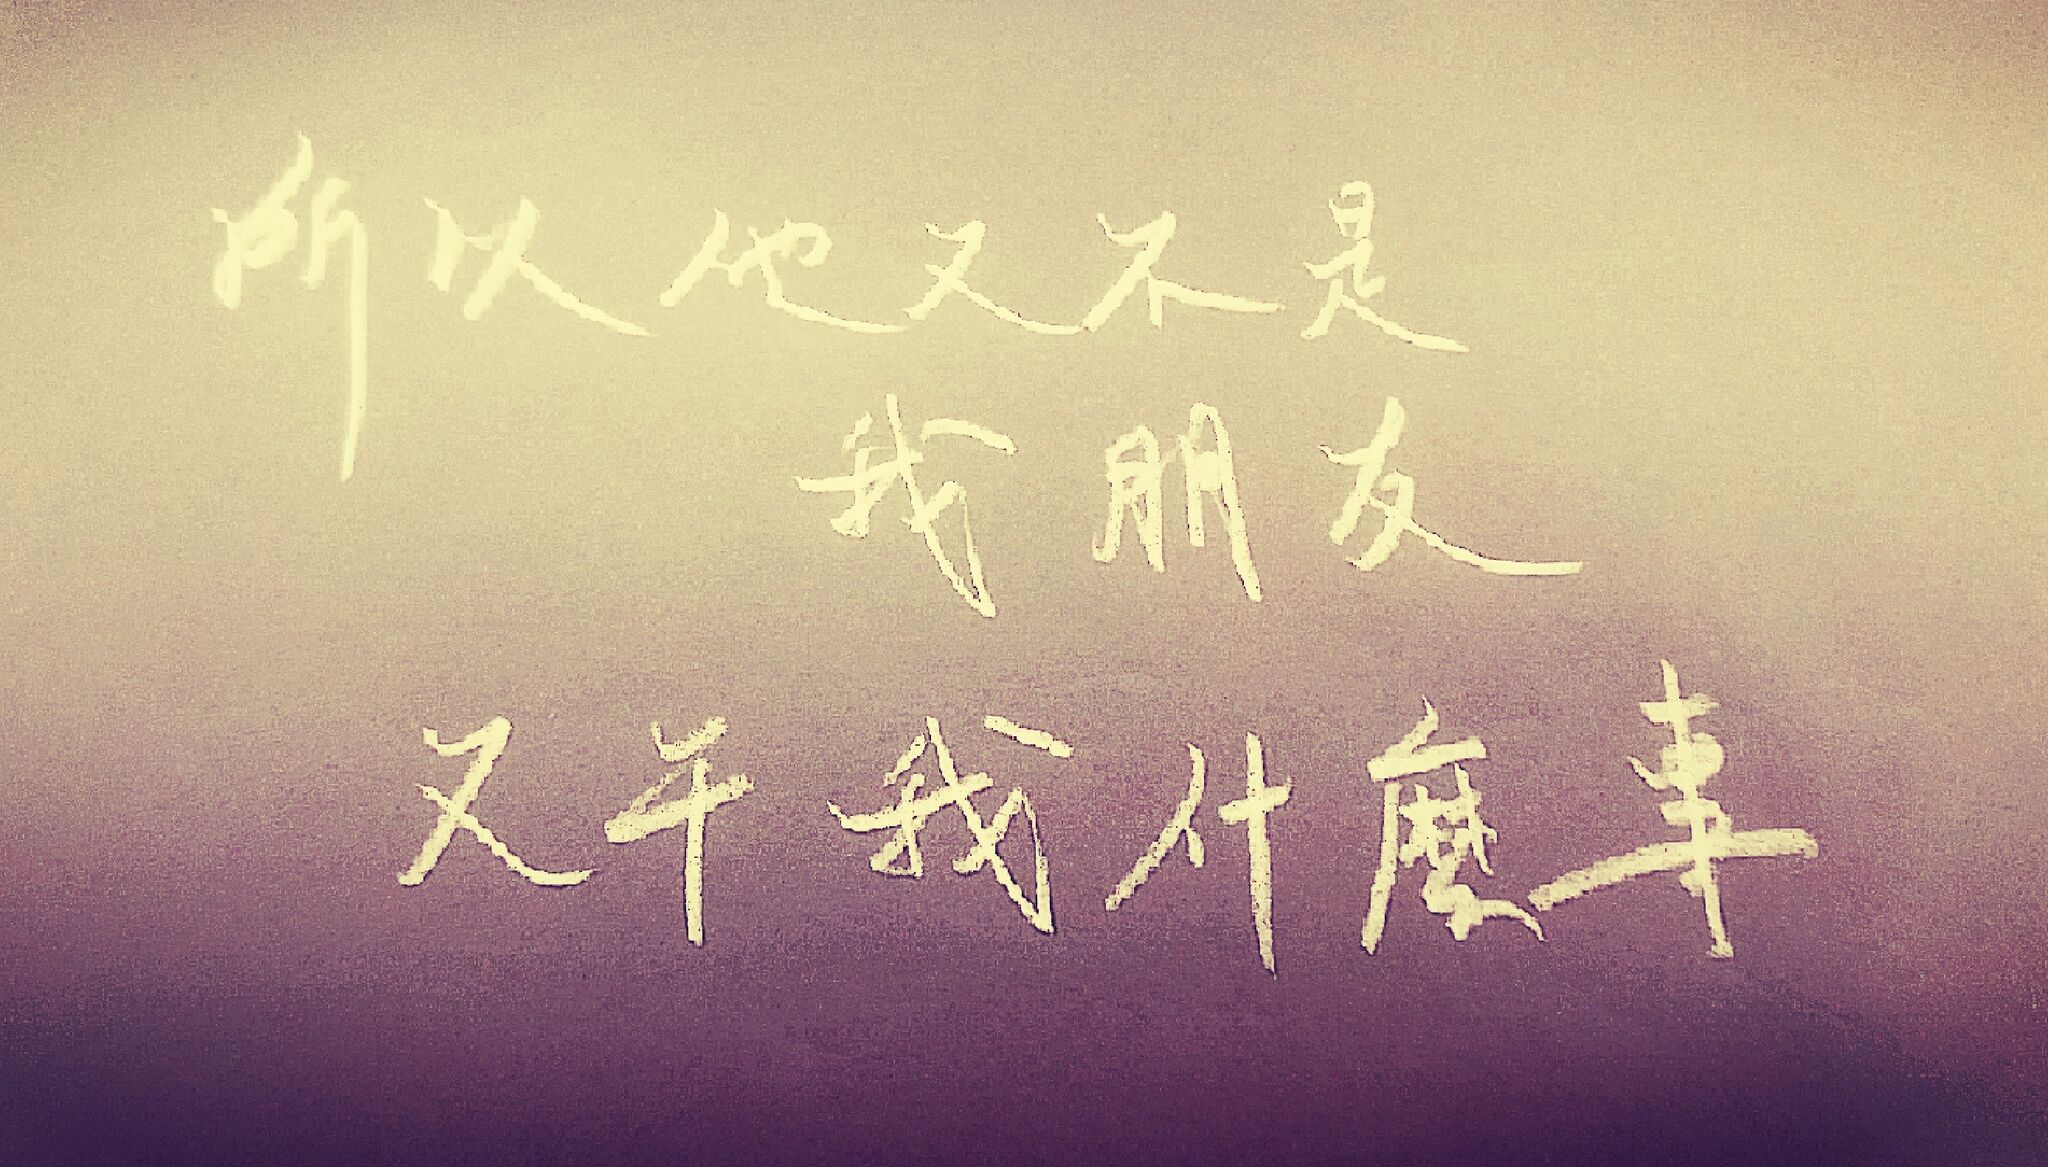 所以他又不是
我朋友
又干我什麼事